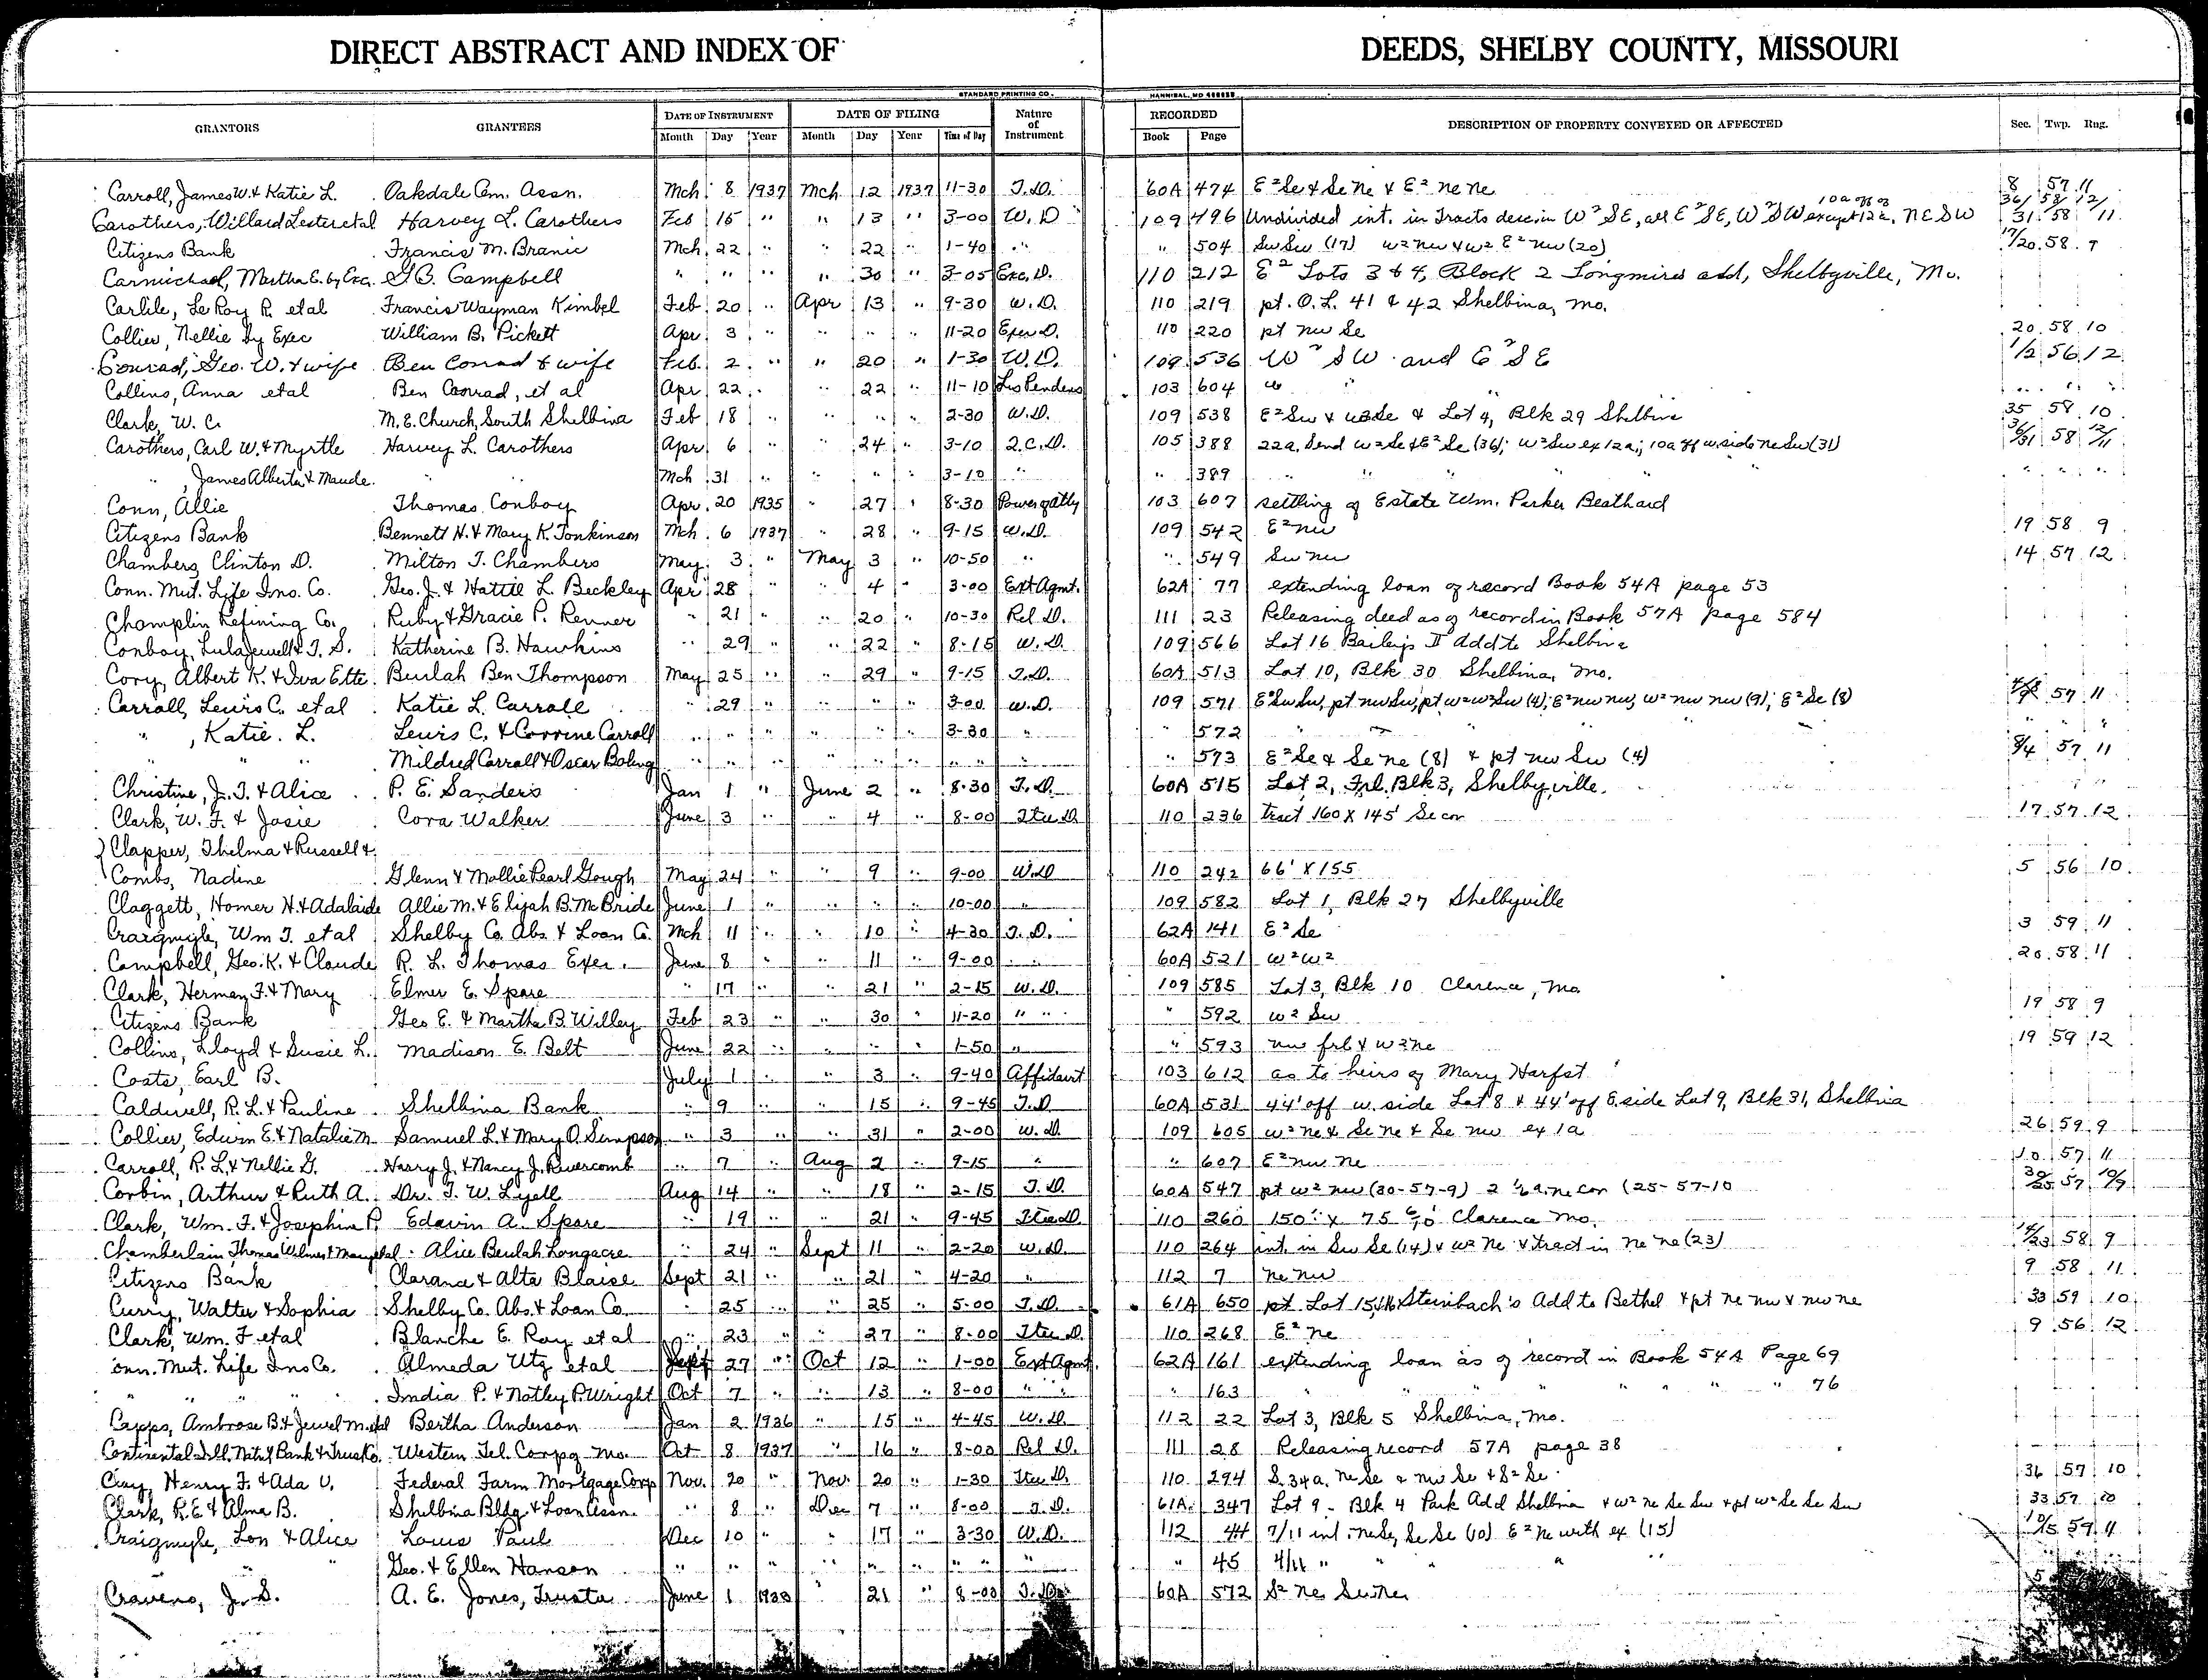 DIRECT ABSTRACT AND INDEX OF DEEDS, SHELBY COUNTY, MISSOURI
STANDARD PRINTING CO. HANNIBAL, MO
GRANTORS GRANTEES DATE OF INSTRUMENT DATE OF FILING Nature of Instrument RECORDED DESCRIPTION OF PROPERTY CONVEYED OR AFFECTED Sec. Twp. Rng.
Month Day Year Month Day Year Time of Day Book Page
Carroll, James W. & Katie L. Oakdale Cem. Assn. Mch. 8 1937 Mch. 12 1937 11-30 T.D. 60A 474 E² Se & Se Ne & E² ne ne 8 57 11
Carothers, Willard Lester etal Harvey L. Carothers Feb 15 " " 13 " 3-00 W.D 109 496 Undivided int. in Tracts desc. in W² SE, all E² SE, W² SW except 12a, 10a off of NE SW 36/31 58/58 12/11
Citizens Bank Francis M. Branic Mch. 22 " " 22 " 1-40 " " 504 Sw Sw (17) w² nw & w² E² nw (20) 17/20 58 9
Carmichael, Martha E. by Exc. G.B. Campbell " " " " 30 " 3-05 Exc. D. 110 212 E² Lots 3 & 4, Block 2 Longmires add, Shelbyville, Mo.
Carlile, Le Roy R. etal Francis Wayman Kimbel Feb 20 " Apr 13 " 9-30 W.D. 110 219 pt. O.L. 41 & 42 Shelbina, Mo.
Collier, Nellie by Exec William B. Pickett Apr 3 " " " " 11-20 Exec D. 110 220 pt nw Se 20 58 10
Conrad, Geo. W. & wife Ben Conrad & wife Feb. 2 " " 20 " 1-30 W.D. 109 536 W² SW and E² SE 1/2 56 12
Collins, Anna etal Ben Conrad, et al Apr 22 " " 22 " 11-10 Lis Pendens 103 604 " " " " " "
Clark, W. C. M.E. Church, South Shelbina Feb 18 " " " " 2-30 W.D. 109 538 E² Sw & Se & Lot 4, Blk 29 Shelbina 35 58 10
Carothers, Carl W. & Myrtle Harvey L. Carothers Apr 6 " " 24 " 3-10 Q.C.D. 105 388 22a. Send w² Se & E² Se (36); w² Sw ex 12a; 10a off w. side ne Sw (31) 36/31 58 12/11
" , James Albert & Maude " " Mch 31 " " " " 3-10 " " 389 " " " " " " "
Conn, Allie Thomas Conboy Apr. 20 1935 " 27 " 8-30 Power of Atty 103 607 settling of Estate Wm. Parker Beathard
Citizens Bank Bennett H. & Mary K. Tonkinson Mch 6 1937 " 28 " 9-15 W.D. 109 542 E² nw 19 58 9
Chambers, Clinton D. Milton T. Chambers May 3 " May 3 " 10-50 " " 549 Sw nw 14 57 12
Conn. Mut. Life Ins. Co. Geo. J. & Hattie L. Beckley Apr 28 " " 4 " 3-00 Ext Agmt. 62A 77 extending loan of record Book 54A page 53
Champlin Refining Co. Ruby & Gracie P. Renner " 21 " " 20 " 10-30 Rel. D. 111 23 Releasing deed as of record in Book 57A page 584
Conboy, Lula Jewell & T. S. Katherine B. Hawkins " 29 " " 22 " 8-15 W.D. 109 566 Lot 16 Baileys II Add to Shelbina
Cory, Albert K. & Iva Ette Burlah Ben Thompson May 25 " " 29 " 9-15 T.D. 60A 513 Lot 10, Blk 30 Shelbina, Mo.
Carroll, Lewis C. et al Katie L. Carroll " 29 " " " " 3-00 W.D. 109 571 E² Sw Sw, pt nw Sw, pt w² w² Sw (4); E² nw nw, w² nw nw (9); E² Se (8) 57 11
" , Katie. L. Lewis C. & Corrine Carroll " " " " " " 3-30 " " 572 " " "
" " " Mildred Carroll & Oscar Boling " " " " " " " " " 573 E² Se & Se ne (8) & pt nw Sw (4) 8/4 57 11
Christine, J. T. & Alice P. E. Sanders Jan 1 " June 2 " 8-30 T.D. 60A 515 Lot 2, Frl. Blk 3, Shelbyville.
Clark, W. F. & Josie Cora Walker June 3 " " 4 " 8-00 Itee D 110 236 tract 160 X 145' Se cor 17 57 12
Clapper, Thelma & Russell &
Combs, Nadine Glenn & Mollie Pearl Gough May 24 " " 9 " 9-00 W.D 110 242 66' X 155 5 56 10
Claggett, Homer H. & Adalaide Allie M. & Elijah B. McBride June 1 " " " " 10-00 " 109 582 Lot 1, Blk 27 Shelbyville
Craigmyle, Wm T. et al Shelby Co. Abs. & Loan Co. Mch 11 " " 10 " 4-30 T.D. 62A 141 E² Se 3 59 11
Campbell, Geo. K. & Claude R. L. Thomas Exer. June 8 " " 11 " 9-00 " " 60A 521 w² w² 20 58 11
Clark, Herman F. & Mary Elmer E. Spare " 17 " " 21 " 2-15 W.D. 109 585 Lot 3, Blk 10 Clarence, Mo.
Citizens Bank Geo E. & Martha B. Willey Feb 23 " " 30 " 11-20 " " " 592 w² Sw 19 58 9
Collins, Lloyd & Susie L. Madison E. Belt June 22 " " " " 1-50 " " 593 nw frl & w² ne 19 59 12
Coats, Earl B. July 1 " " 3 " 9-40 Affidavit 103 612 as to heirs of Mary Harfst
Caldwell, R. L. & Pauline Shelbina Bank " 9 " " 15 " 9-45 T.D 60A 531 44' off w. side Lot 8 & 44' off E. side Lot 9, Blk 31, Shelbina
Collier, Edwin E. & Natalie M. Samuel L. & Mary O. Simpson " 3 " " 31 " 2-00 W.D. 109 605 w² ne & Se ne & Se nw ex 1a 26 59 9
Carroll, R. L. & Nellie G. Harry J. & Nancy J. Rivercomb " 7 " Aug 2 " 9-15 " " 607 E² nw ne 10 57 11
Corbin, Arthur & Ruth A. Dr. T. W. Lyell Aug 14 " " 18 " 2-15 T.D. 60A 547 pt w² nw (30-57-9) 2 ½ a. ne cor (25-57-10 30/25 57 10/9
Clark, Wm. F. & Josephine P. Edavin A. Spare " 19 " " 21 " 9-45 Itee D. 110 260 150' x 75 Clarence Mo.
Chamberlain Thomas Wilmer & Mary etal Alice Beulah Longacre " 24 " Sept 11 " 2-20 W.D. 110 264 int. in Sw Se (14) & w² ne & tract in ne ne (23) 14/23 58 9
Citizens Bank Clarance & Alta Blaise Sept 21 " " 21 " 4-20 " 112 7 ne nw 9 58 11
Curry, Walter & Sophia Shelby Co. Abs. & Loan Co. " 25 " " 25 " 5-00 T.D. 61A 650 pt Lot 15, 16 Steinbach's Add to Bethel & pt ne nw & nw ne 33 59 10
Clark, Wm. F etal Blanche E. Ray et al " 23 " " 27 " 8-00 Itee D. 110 268 E² ne 9 56 12
onn. Mut. Life Ins Co. Almeda Utz etal Sept 27 " Oct 12 " 1-00 Ext Agmt. 62A 161 extending loan as of record in Book 54A Page 69
" " " " India P. & Notley P. Wright Oct 7 " " 13 " 8-00 " " " 163 " " " " " " " 76
Capps, Ambrose B. & Jewel M. etal Bertha Anderson Jan 2 1936 " 15 " 4-45 W.D. 112 22 Lot 3, Blk 5 Shelbina, Mo.
Continental Ill. Nat'l Bank & Trust Co. Western Tel. Corp of Mo. Oct 8 1937 " 16 " 8-00 Rel D. 111 28 Releasing record 57A page 38
Clay, Henry F. & Ada V. Federal Farm Mortgage Corp Nov. 20 " Nov. 20 " 1-30 Itee D. 110 294 S. 34a. ne Se & nw Se & S² Se 36 57 10
Clark, R.E. & Alma B. Shelbina Bldg & Loan Assn. " 8 " Dec 7 " 8-00 T.D. 61A 347 Lot 9 - Blk 4 Park Add Shelbina & w² ne Se Sw & pt w² Se Se Sw 33 57 10
Craigmyle, Lon & Alice Louis Paul Dec 10 " " 17 " 3-30 W.D. 112 44 7/11 int. ne Se, Se Se (10) E² ne with ex (15) 10/15 59 11
" " Geo. & Ellen Hanson " " " " " " " " " 45 4/11 " " " "
Cravens, J. S. A. E. Jones, Trustee June 1 1933 " 21 " 8-00 T.D. 60A 572 S² ne Sw ne 5